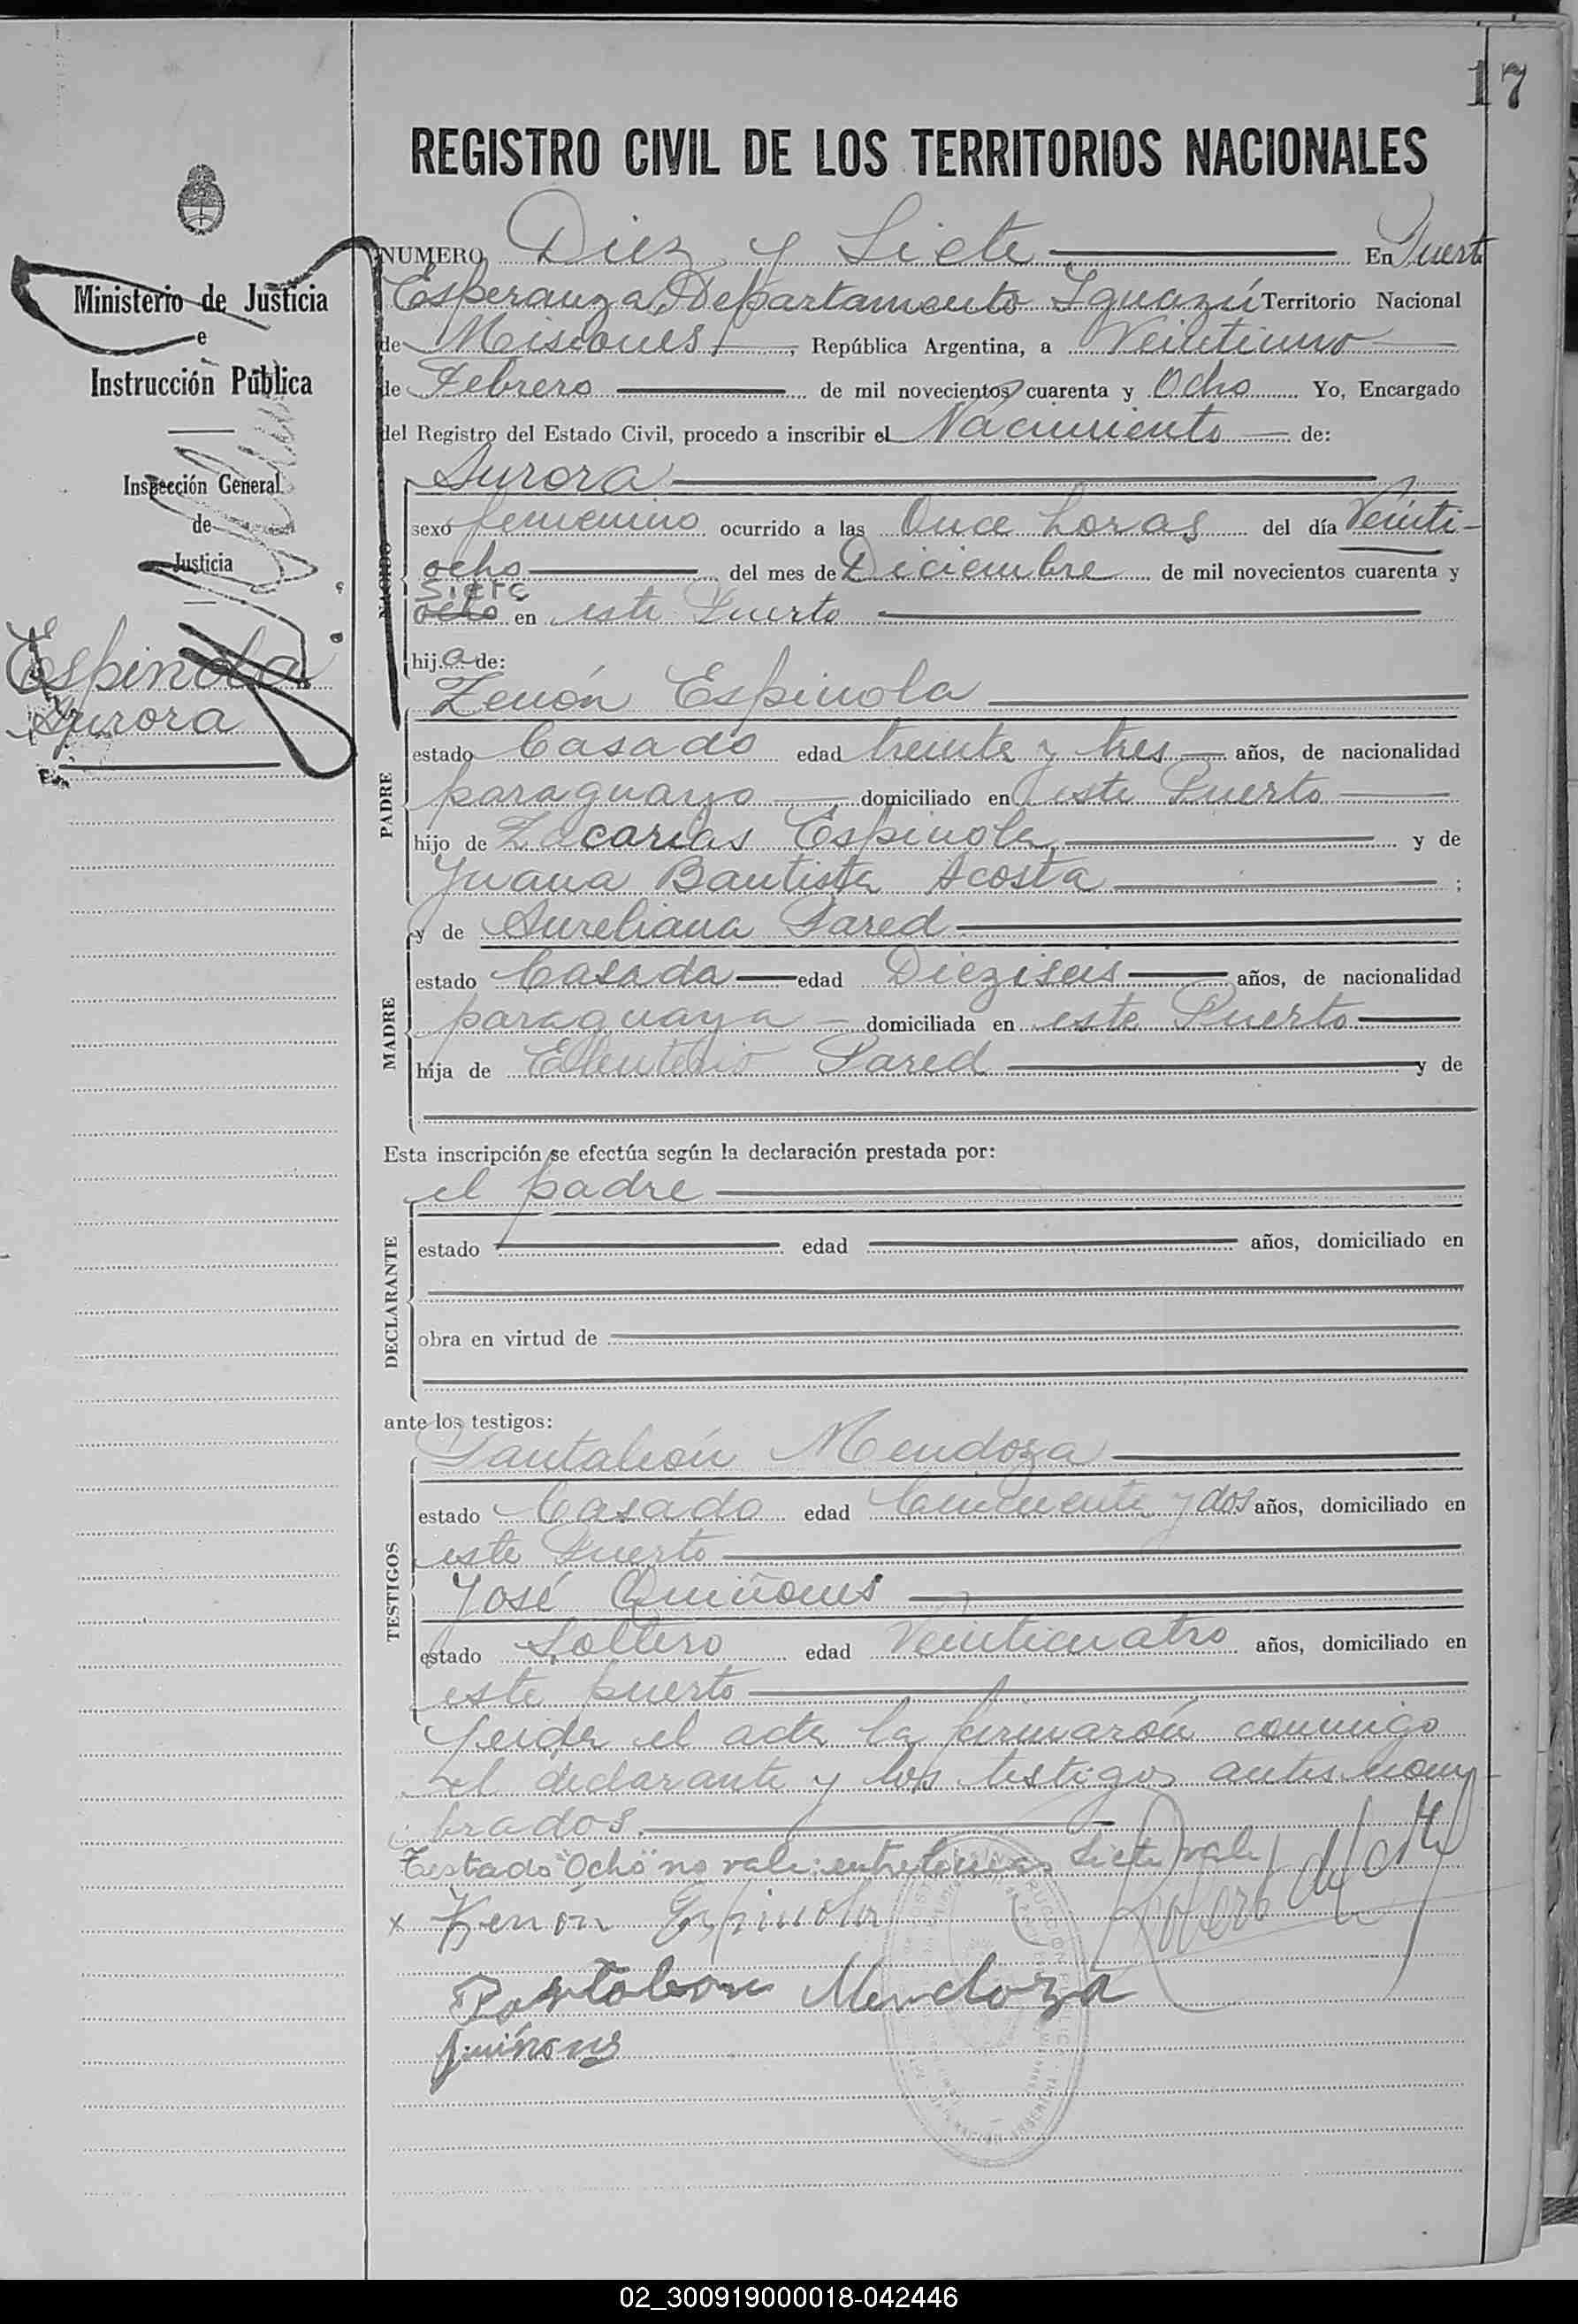 17
REGISTRO CIVIL DE LOS TERRITORIOS NACIONALES
Ministerio de Justicia
e
Instrucción Pública
Inspección General
de
Justicia
Espinola
Aurora
NUMERO Diez y Siete En Puerto
Esperanza, Departamento Iguazú Territorio Nacional
de Misiones, República Argentina, a Veintiuno
de Febrero de mil novecientos cuarenta y Ocho Yo, Encargado
del Registro del Estado Civil, procedo a inscribir el Nacimiento de:
NACIDO
Aurora
sexo femenino ocurrido a las Once horas del día Veinti-
ocho del mes de Diciembre, de mil novecientos cuarenta y
siete
ocho en este Puerto
hija de:
PADRE
Zenón Espinola
estado Casado edad treinta y tres años, de nacionalidad
paraguayo domiciliado en este Puerto
hijo de Zacarias Espinola y de
Juana Bautista Acosta ;
MADRE
y de Aureliana Pared
estado Casada edad Dieziseis años, de nacionalidad
paraguaya domiciliada en este Puerto
hija de Pared y de
Esta inscripción se efectúa según la declaración prestada por:
DECLARANTE
el padre
estado edad años, domiciliado en
obra en virtud de
ante los testigos:
TESTIGOS
Pantaleón Mendoza
estado Casado edad Cincuenta y dos años, domiciliado en
este Puerto
José Quiñones
estado Soltero edad Veinticuatro años, domiciliado en
este puerto
Leida el acta la firmarón conmigo
el declarante y los testigos antes nom-
brados.
Testado "Ocho" no vale: entrelineas Siete vale
x Zenón Espinola
Pantaleon Mendoza
Quiñones
02_300919000018-042446